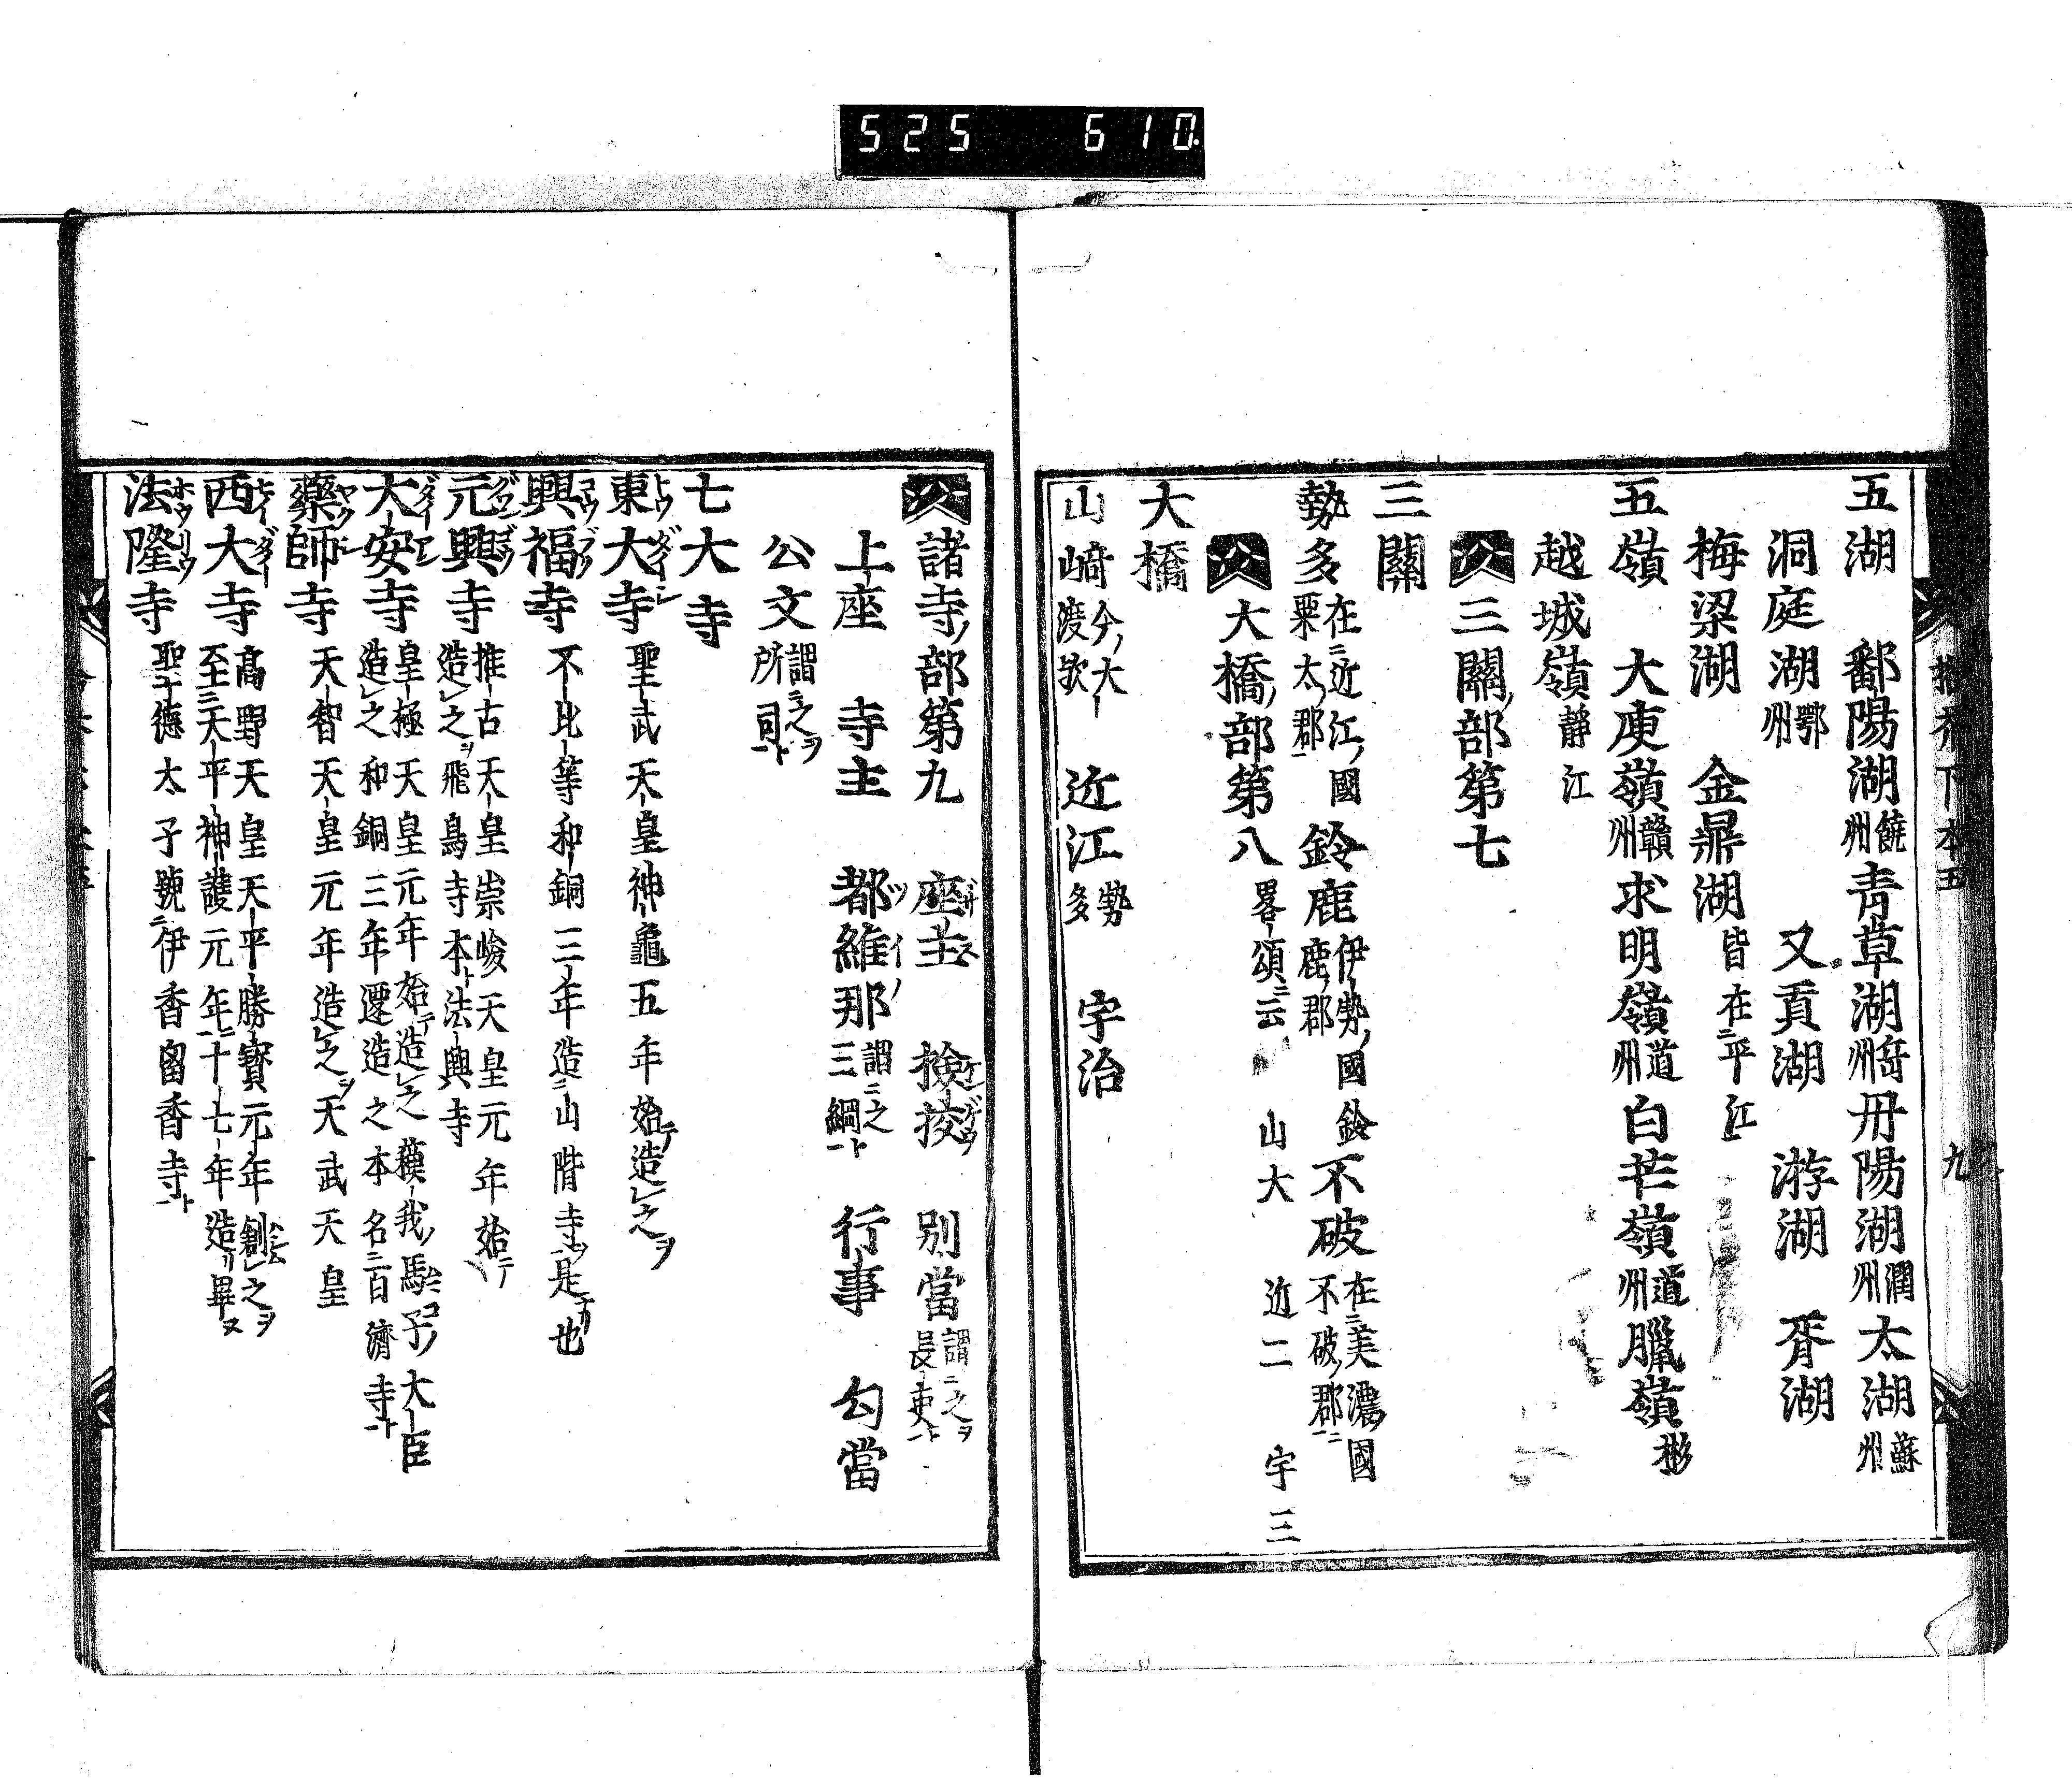 525 610
五湖 鄱陽湖饒州青草湖岳州丹陽湖潤州太湖蘇州
洞庭湖鄂州 又貢湖 游湖 胥湖
梅梁湖 金鼎湖皆在二平江
五嶺 大庾嶺贛州求明嶺道州白芒嶺道州臘嶺彬
越城嶺靜江
三關部第七
三關
勢多在二近江國栗太郡一 鈴鹿伊勢國鈴鹿郡 不破在二美濃國不破郡一
大橋部第八畧頌云 山大 近二 宇三
大橋
山﨑今大渡欤 近江勢多 宇治
諸寺部第九 座主 撿挍 別當謂二之ヲ長吏ト一
上座 寺主 都維那謂二之三綱ト一 行事 勾當
公文謂二之ヲ所司ト一
七大寺
東大寺聖武天皇神龜五年始テ造レ之ヲ
興福寺不比等和銅三年造二山階寺ヲ一是也
元興寺推古天皇崇峻天皇元年始テ造レ之ヲ飛鳥寺本ト法興寺
大安寺皇極天皇元年始テ造レ之蘓我馬子大臣造レ之和銅三年遷造之本名二百濟寺ト一
藥師寺天智天皇元年造レ之ヲ天武天皇
西大寺高野天皇天平勝寳元年創レ之ヲ至二天平神護元年一十七年造リ畢ヌ
法隆寺聖德太子號二伊香留香寺ト一
九